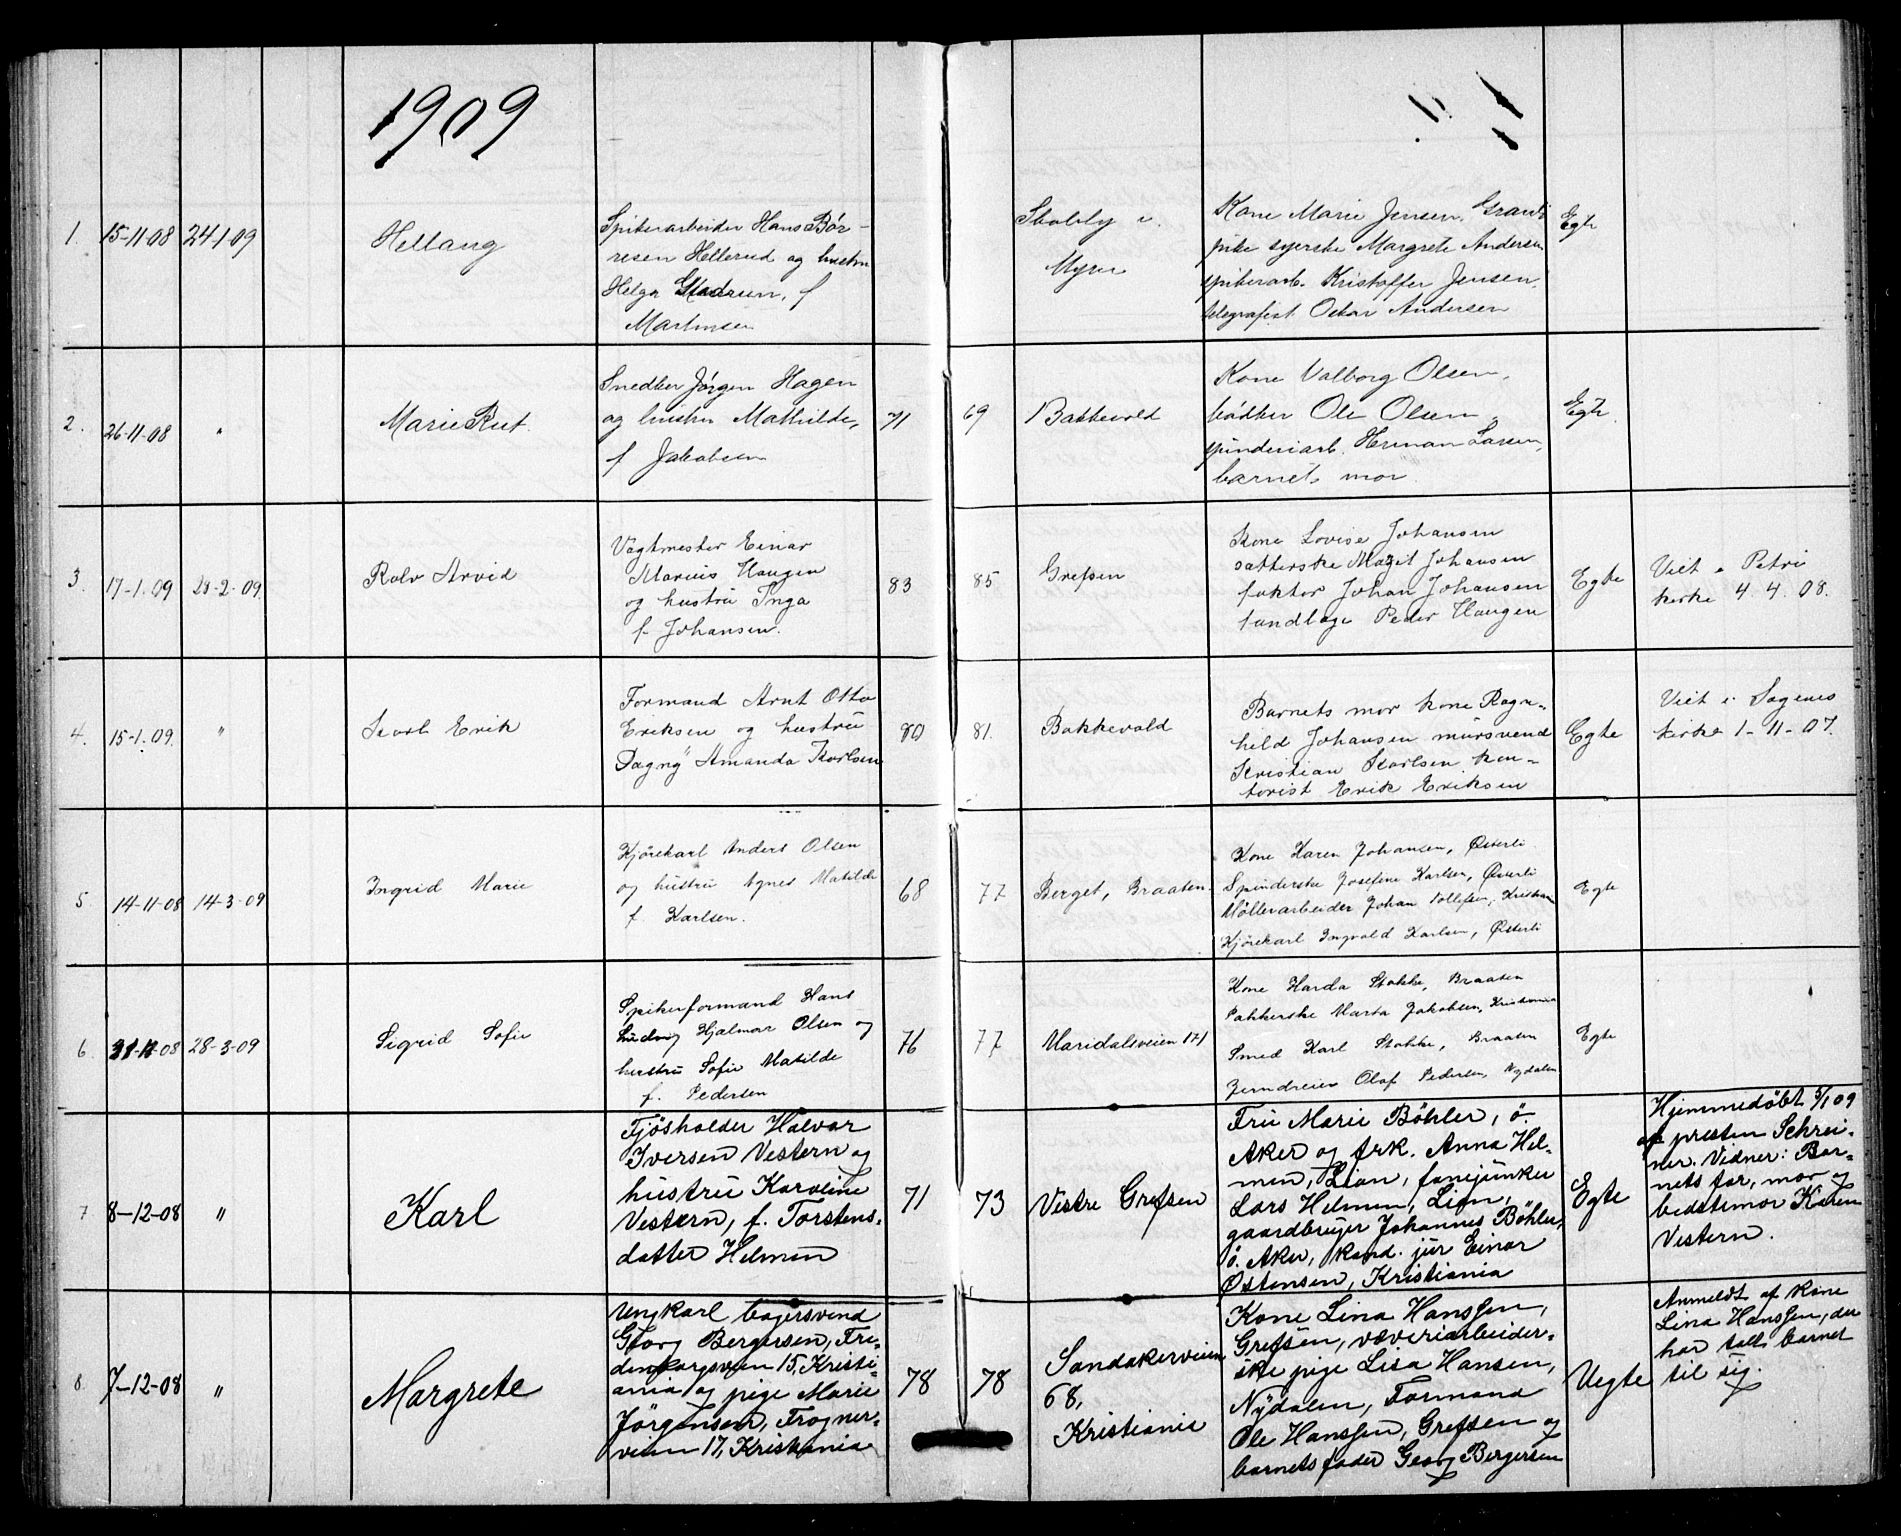 1909
1. 15-11-08 24-1-09
Hellaug
Spikerarbeider Hans Bør-
resen Hellerud og hustru
Helga f
Martinsen
i
Myrer
Kone Marie Jensen,
pike syerske Margrete Andersen
spikerarb. Kristoffer Jensen,
telegrafist Oskar Andersen
Egte
2. 26-11-08 "
Marie Rut
Snedker Jørgen Hagen
og hustru Mathilde,
f Jakobsen
71
69
Bakkevold
Kone Valborg Olsen,
bødker Ole Olsen,
spinderiarb. Herman Larsen,
barnets mor
Egte
3 17-1.09 28-2-09
Rolv Arvid
Vagtmester Einar
Marius Haugen
og hustru Inga
f. Johansen.
83
85
Grefsen
Kone Lovise Johansen
satterske Magit Johansen
faktor Johan Johansen
tandlæge Peder Haugen
Egte
Viet i Petri
kirke 4.4.08.
4. 15-1.09. "
Karl Erik
Formand Arnt Otto
Eriksen og hustru
Dagny Amanda Karlsen
80
81.
Bakkevold
Barnets mor kone Ragn-
hild Johansen mursvend
Kristian Karlsen kon-
torist Erik Eriksen
Egte
Viet i Sagenes
kirke 1-11-07.
5 14-11-08 14-3-09
Ingrid Marie
Kjørekarl Anders Olsen
og hustru Agnes Matilde
f. Karlsen.
68
77
Berget, Braaten.
Kone Karen Johansen, Østerli
Spinderske Josefine Karlsen, Østerli
Møllerarbeider Johan Tollefsen, Kristiania
Kjørekarl Ingvald Karlsen, Østerli
Egte
6. 28-3-09
Sigrid Sofie
Spikerformand Hans
Ludvig Hjalmar Olsen og
hustru Sofie Matilde
f. Pedersen
76
77
Maridalsveien 171
Kone Harda Stokke, Braaten
Pakkerske Marta Jakobsen, Kristiania
Smed Karl Stokke, Braaten
Jerndreier Olaf Pedersen, Nydalen
Egte
7 8-12-08 "
Karl
Fjøsholder Halvar
Iversen Vestern og
hustru Karoline
Vestern, f. Torstens-
datter Helmen
71
73
Vestre Grefsen
Fru Marie Bøhler, ö.
Aker og frk. Anna Hel-
men, Lian, fanejunker
Lars Helmen, Lian,
gaardbruger Johannes Bøhler,
ö. Aker, kand. jur Einar
Østensen, Kristiania
Egte
Hjemmedøbt 5/1 09
af presten Schrei-
ner. Vidner: Bar-
nets far, mor og
bedstemor Karen
Vestern.
8. 7-12-08 "
Margrete
Ungkarl bagersvend
Georg Bergersen, Fre-
densborgveien 15, Kristi-
ania og pige Marie
Jörgensen, Frogner-
veien 17, Kristiania
78
78
Sandakerveien
68,
Kristiania
Kone Lina Hanssen,
Grefsen, væveriarbeider-
ske pige Lisa Hansen,
Nydalen, Formand
Ole Hanssen, Grefsen og
barnets fader Georg Bergersen
Uegte
Anmeldt af kone
Lina Hanssen, der
har tatt barnet
til sig.